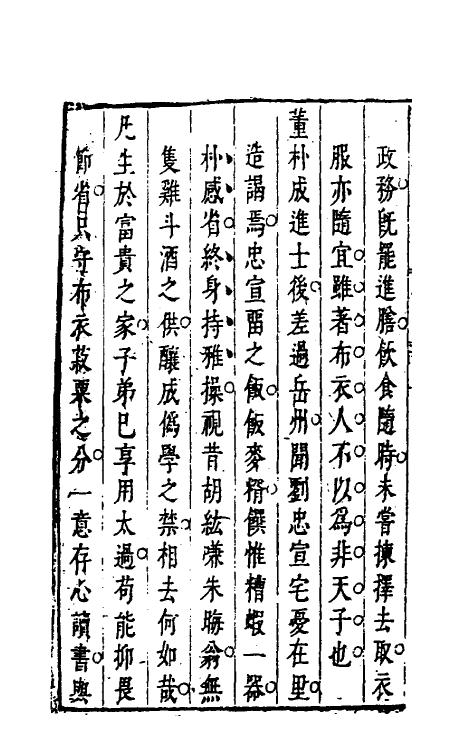 政務既罷進膳飲食隨時未嘗揀擇去取衣
服亦隨宜雖著布衣人不以為非天子也
董朴成進士後差過岳州聞劉忠宣宅憂在里
造謁焉忠宣畱之飯飯麥糈饌惟糟蝦一器
朴感省終身持雅操視昔胡紘嗛朱晦翁無
隻雞斗酒之供釀成僞學之禁相去何如哉
凡生於富貴之家子弟已享用太過苟能抑畏
節省只守布衣菽粟之分一意存心讀書與